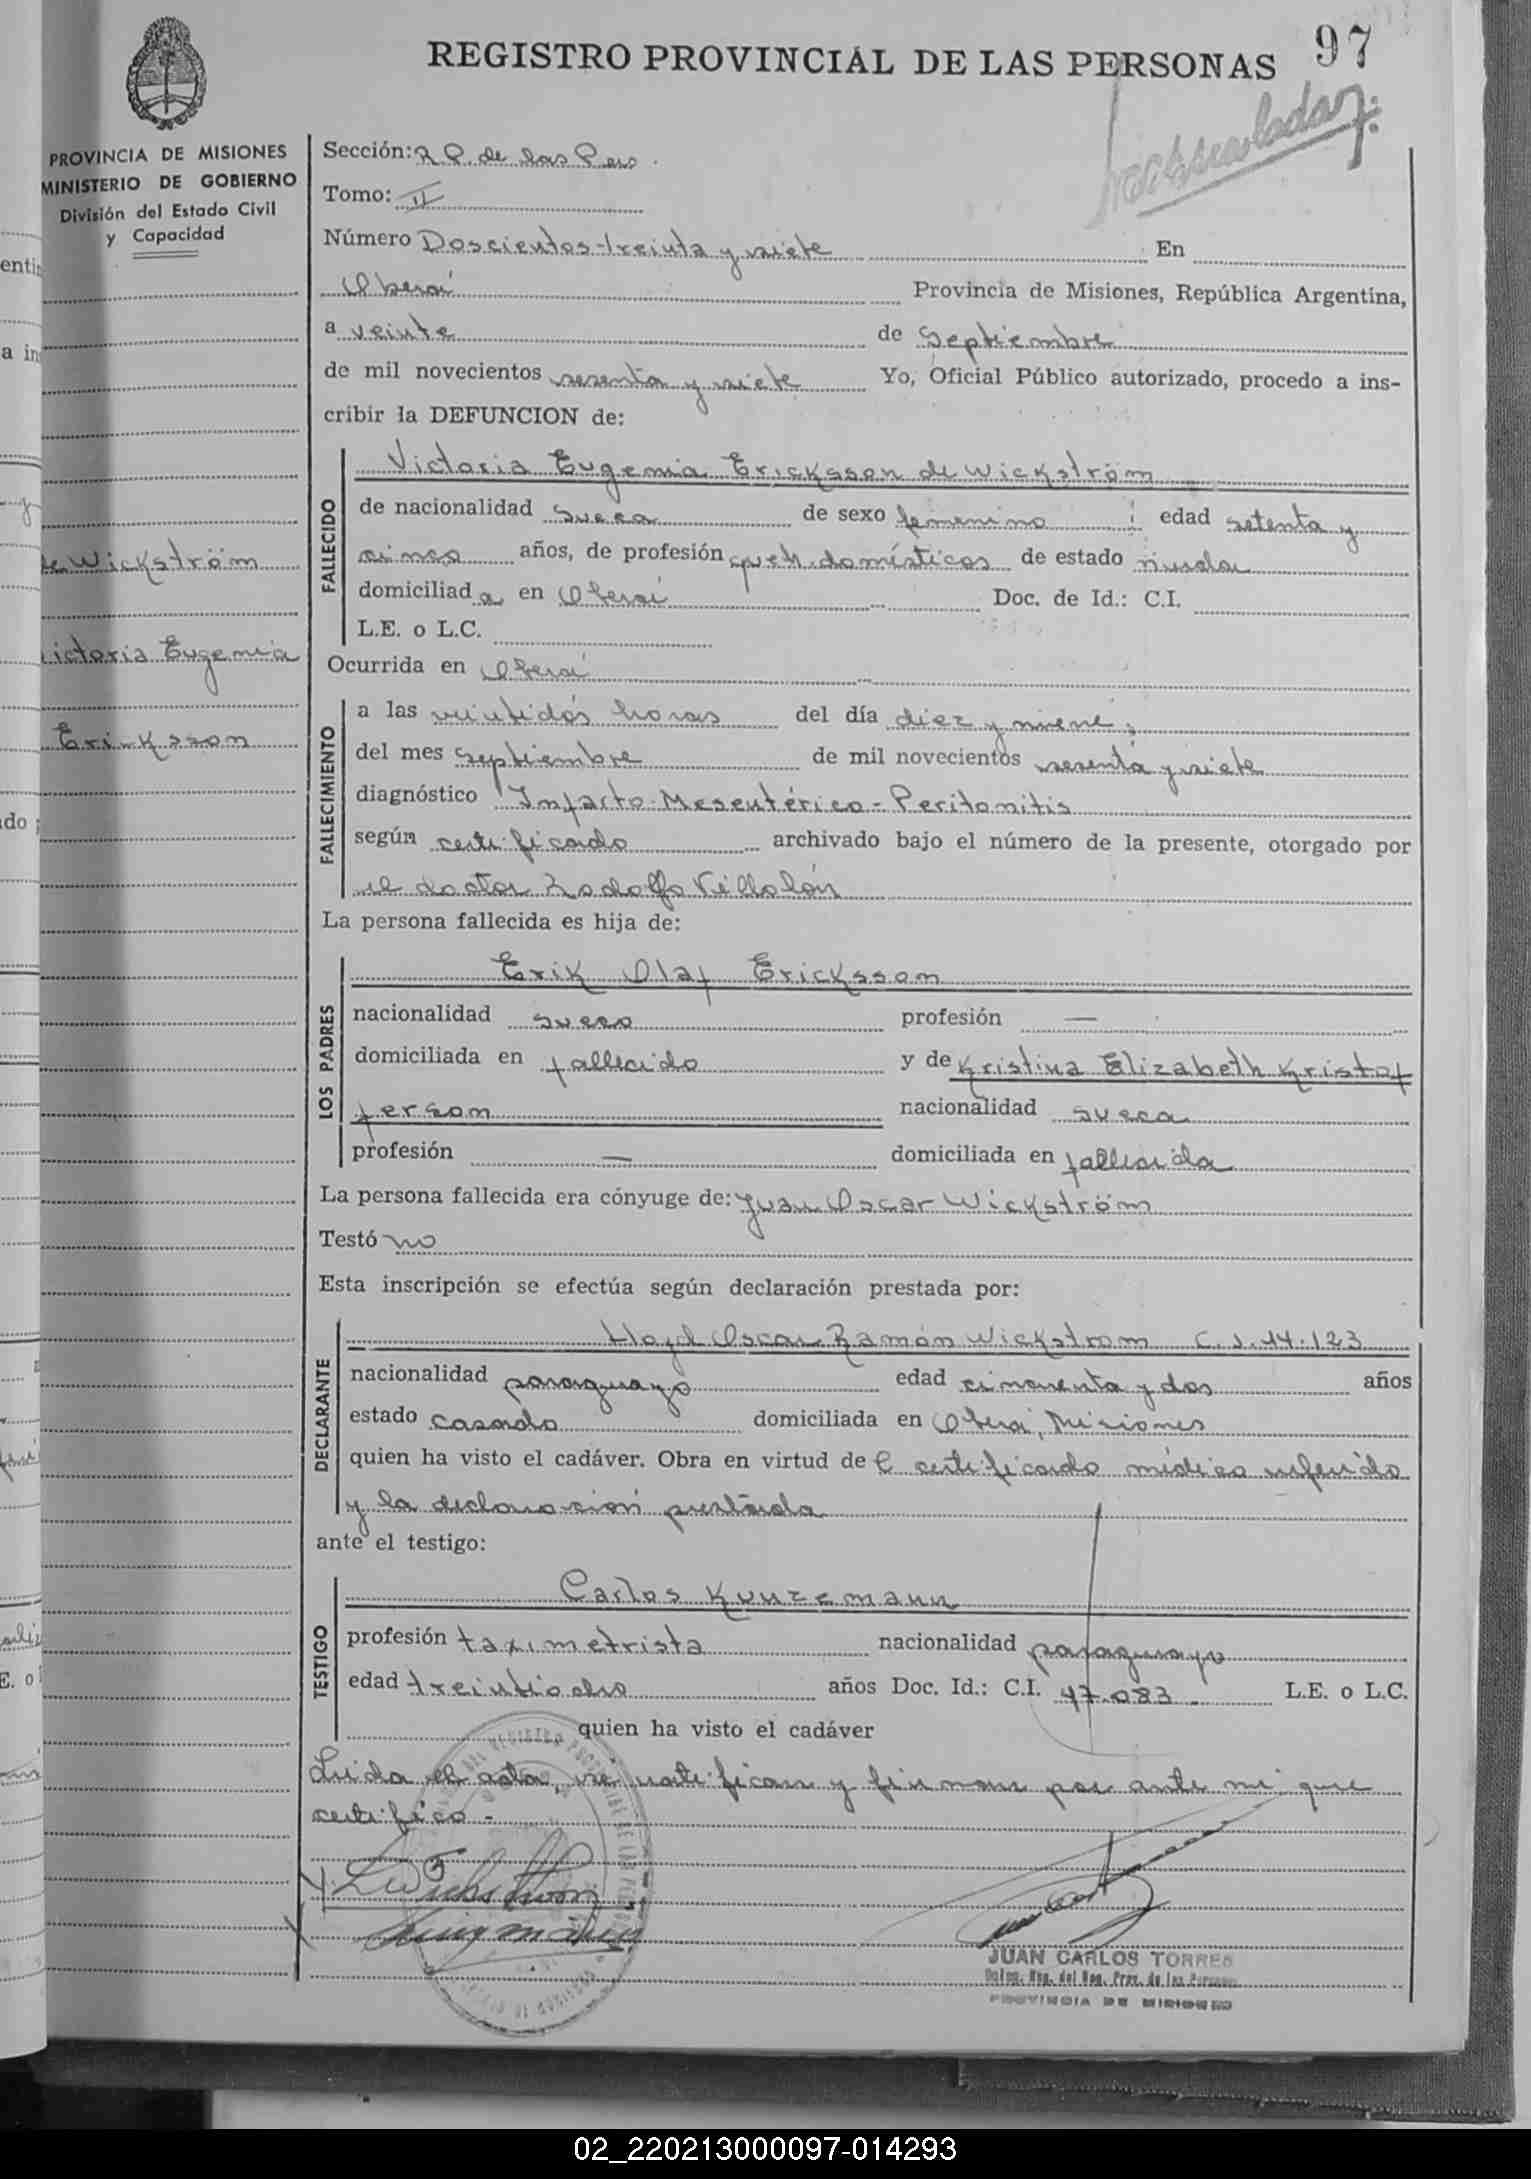 REGISTRO PROVINCIAL DE LAS PERSONAS 97
PROVINCIA DE MISIONES
MINISTERIO DE GOBIERNO
División del Estado Civil
y Capacidad
de Wickström
Victoria Eugenia
Ericksson
Sección: R P. de las Pers.
Tomo: II
Número Doscientos treinta y siete En
Oberá Provincia de Misiones, República Argentina,
a veinte de Septiembre
de mil novecientos sesenta y siete Yo, Oficial Público autorizado, procedo a ins-
cribir la DEFUNCION de:
FALLECIDO
Victoria Eugenia Ericksson de Wickström
de nacionalidad sueca de sexo femenino edad setenta y
cinco años, de profesión queh. domésticos de estado viuda
domiciliada en Oberá Doc. de Id.: C.I.
L.E. o L.C.
Ocurrida en Oberá
FALLECIMIENTO
a las veintidós horas del día diez y nueve,
del mes septiembre de mil novecientos sesenta y siete
diagnóstico Infarto Mesentérico - Peritonitis
según certificado archivado bajo el número de la presente, otorgado por
el doctor Rodolfo Villalón
La persona fallecida es hija de:
LOS PADRES
Erik Olaf Ericksson
nacionalidad sueco profesión —
domiciliada en fallecido y de Kristina Elizabeth Kristof
ferson nacionalidad sueca
profesión — domiciliada en fallecida
La persona fallecida era cónyuge de: Juan Oscar Wickström
Testó no
Esta inscripción se efectúa según declaración prestada por:
DECLARANTE
Lloyd Oscar Ramón Wickstrom C.I. 14.123
nacionalidad paraguayo edad cincuenta y dos años
estado casado domiciliada en Oberá, Misiones
quien ha visto el cadáver. Obra en virtud de l certificado médico referido
y la declaración prestada
ante el testigo:
TESTIGO
Carlos Kunzemann
profesión taximetrista nacionalidad paraguayo
edad treintiocho años Doc. Id.: C.I. 47.083 L.E. o L.C.
quien ha visto el cadáver
Leida el acta, se ratifican y firman por ante mi que
certifico.-
JUAN CARLOS TORRES
PROVINCIA DE MISIONES
02_220213000097-014293